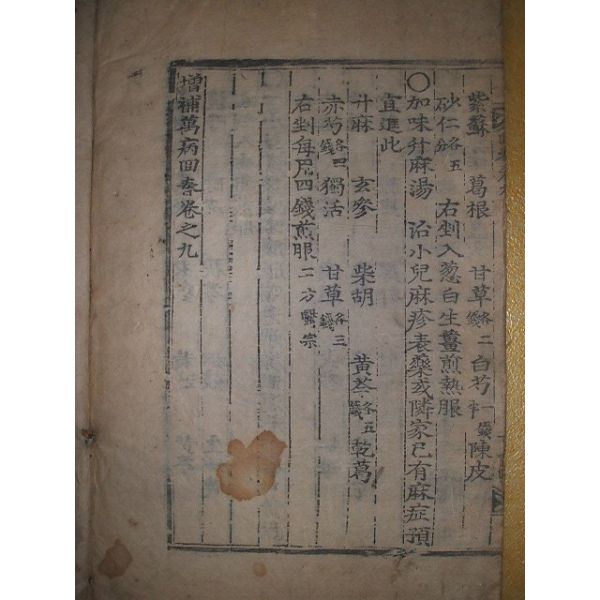 紫蘇 葛根 甘草各二錢 白芍一錢半 陳皮
砂仁各五分 右剉入蔥白生薑煎熱服
〇加味升麻湯 治小兒麻疹表藥或隣家已有麻症預
直進此
升麻 玄參 柴胡 黃芩各五錢 乾葛
赤芍各四錢 獨活 甘草各三錢
右剉每凡四錢煎服 二方醫宗
增補萬病回春卷之九